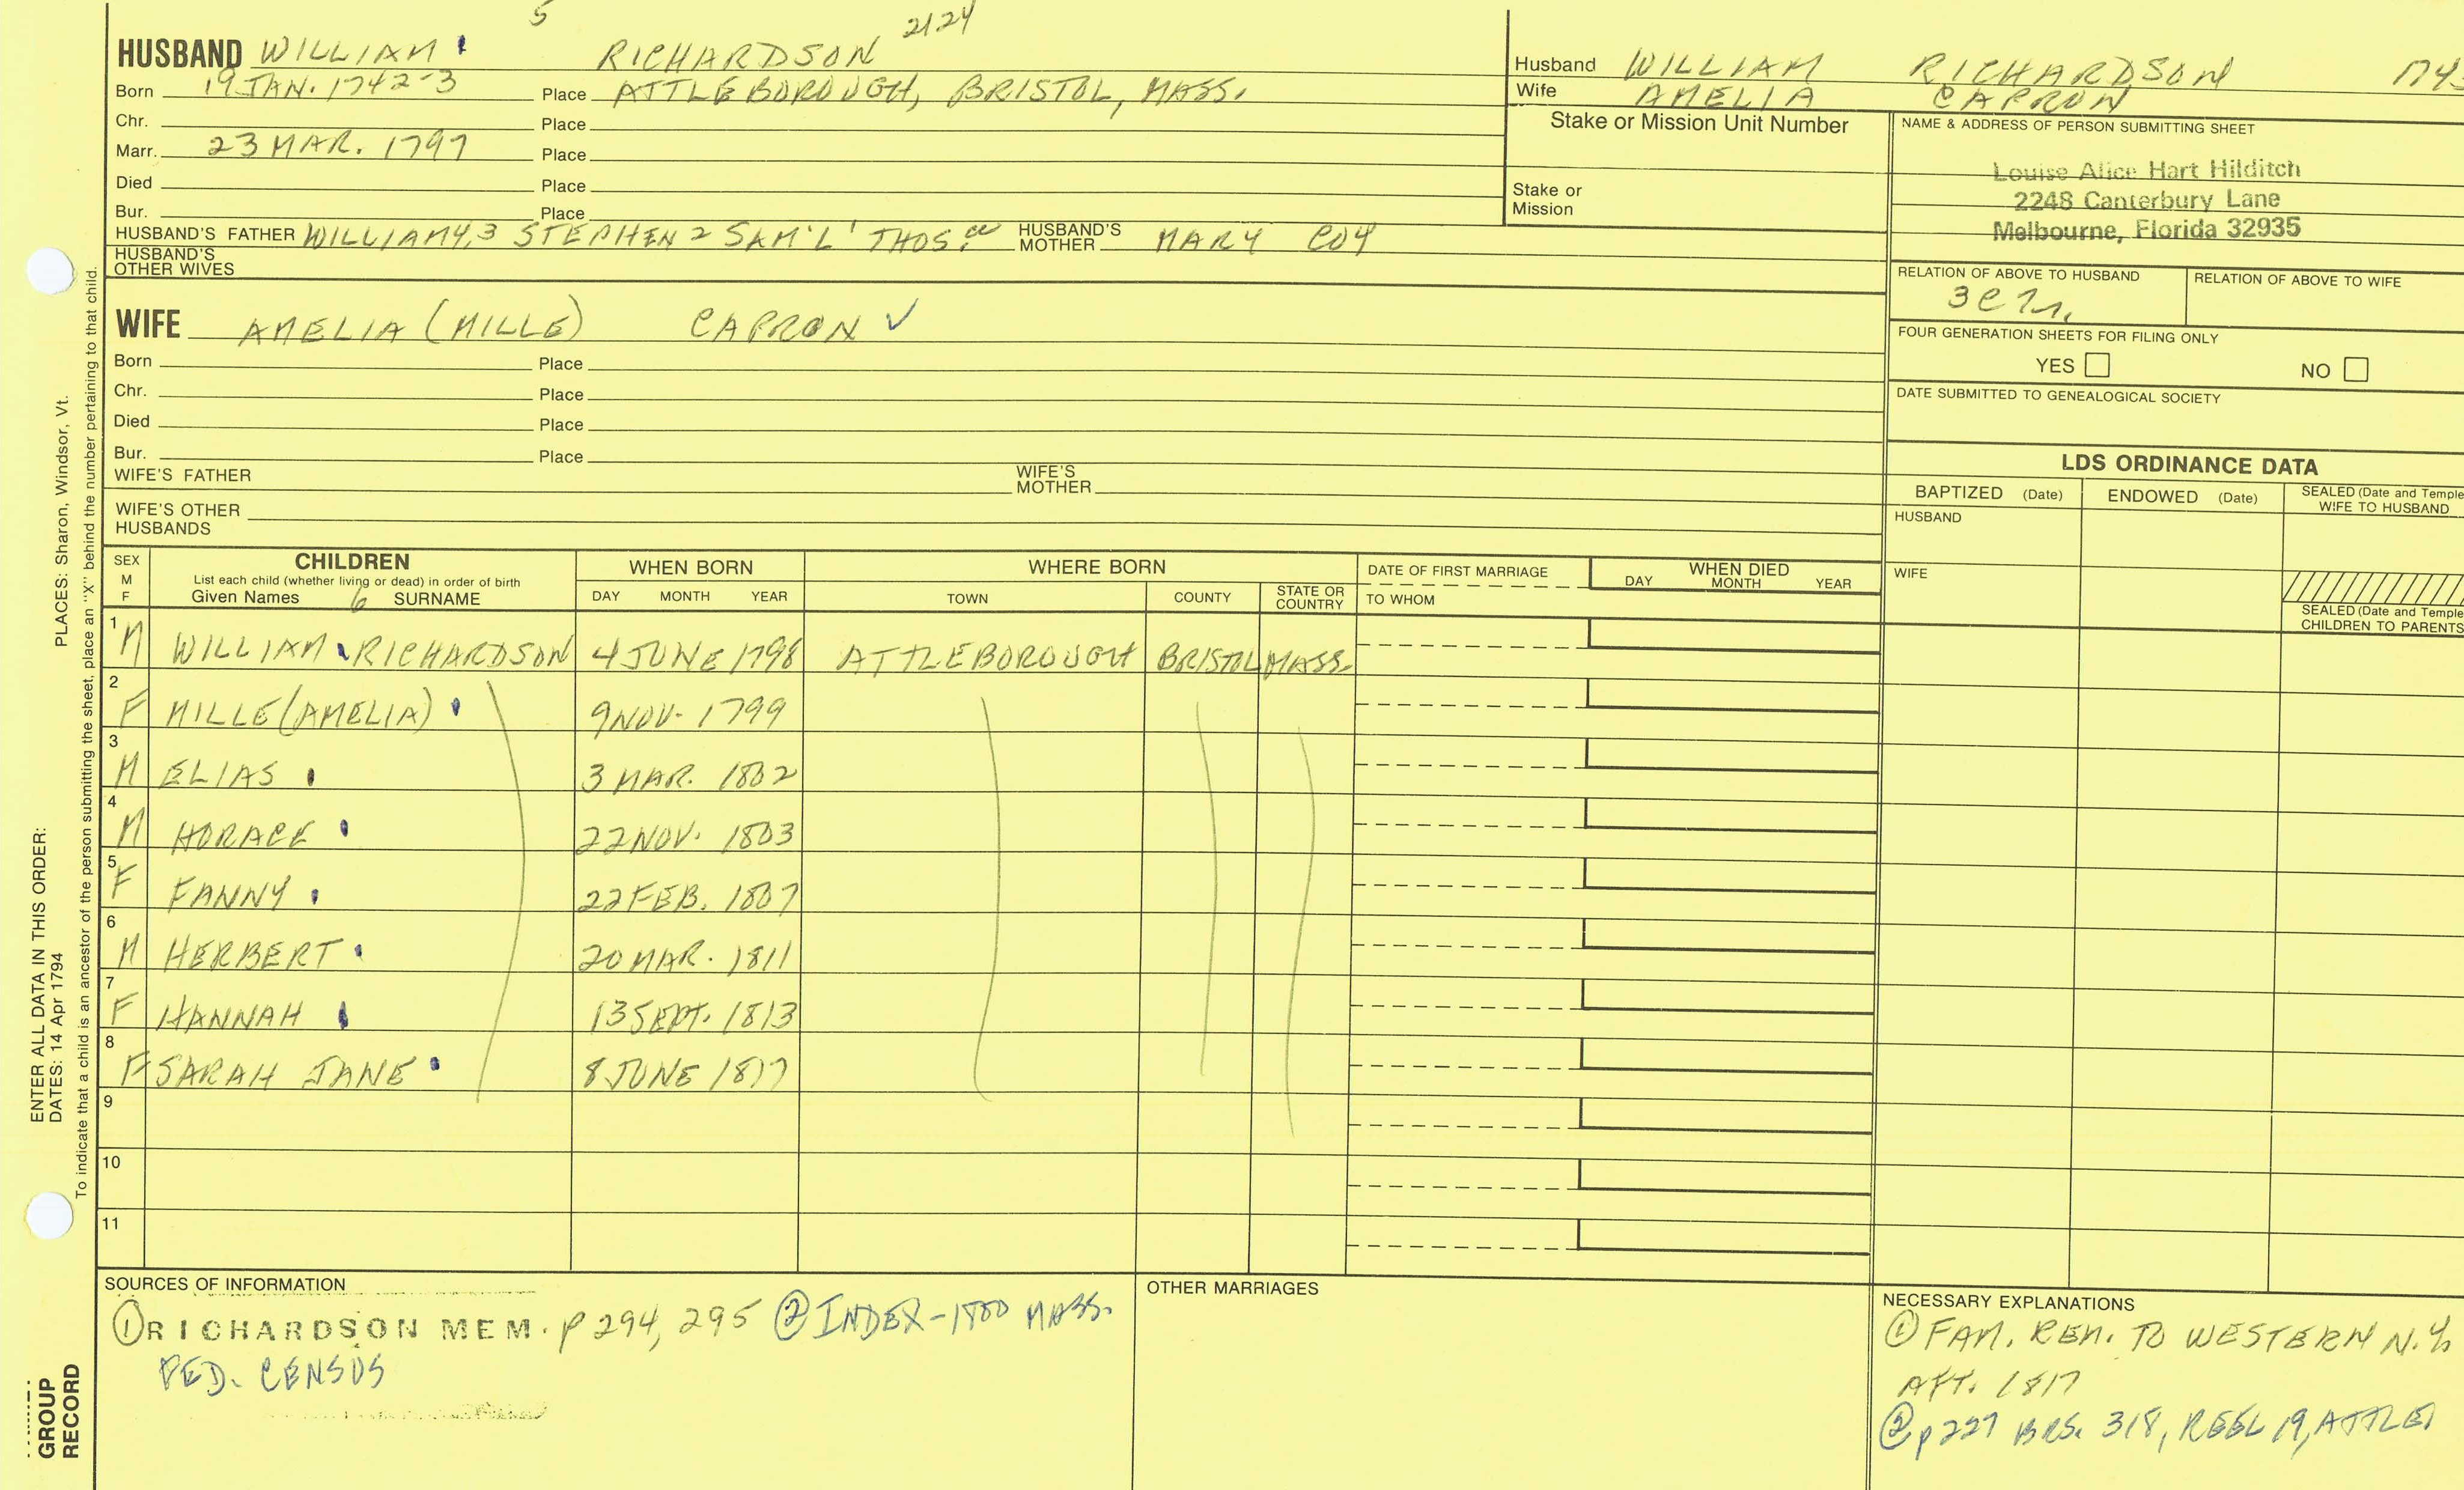 5
2124
HUSBAND WILLIAM RICHARDSON
Born 19 JAN. 1742-3 Place ATTLEBOROUGH, BRISTOL, MASS.
Chr. Place
Marr. 23 MAR. 1797 Place
Died Place
Bur. Place
HUSBAND'S FATHER WILLIAM 4, 3 STEPHEN 2 SAM'L 1 THOS. HUSBAND'S MOTHER MARY COY
HUSBAND'S OTHER WIVES
WIFE AMELIA (MILLE) CAPRON ✓
Born Place
Chr. Place
Died Place
Bur. Place
WIFE'S FATHER WIFE'S MOTHER
WIFE'S OTHER HUSBANDS
Husband WILLIAM RICHARDSON
Wife AMELIA CAPRON
Stake or Mission Unit Number
Stake or Mission
NAME & ADDRESS OF PERSON SUBMITTING SHEET
Louise Alice Hart Hilditch
2248 Canterbury Lane
Melbourne, Florida 32935
RELATION OF ABOVE TO HUSBAND RELATION OF ABOVE TO WIFE
FOUR GENERATION SHEETS FOR FILING ONLY
YES NO
DATE SUBMITTED TO GENEALOGICAL SOCIETY
LDS ORDINANCE DATA
BAPTIZED (Date) ENDOWED (Date) SEALED (Date and Temple) WIFE TO HUSBAND
HUSBAND
WIFE
SEALED (Date and Temple) CHILDREN TO PARENTS
SEX M F CHILDREN List each child (whether living or dead) in order of birth Given Names 6 SURNAME WHEN BORN DAY MONTH YEAR WHERE BORN TOWN COUNTY STATE OR COUNTRY DATE OF FIRST MARRIAGE TO WHOM WHEN DIED DAY MONTH YEAR
1 M WILLIAM RICHARDSON 4 JUNE 1798 ATTLEBOROUGH BRISTOL MASS.
2 F MILLE (AMELIA) 9 NOV. 1799
3 M ELIAS 3 MAR. 1802
4 M HORACE 22 NOV. 1803
5 F FANNY 22 FEB. 1807
6 M HERBERT 20 MAR. 1811
7 F HANNAH 13 SEPT. 1813
8 F SARAH JANE 8 JUNE 1817
9
10
11
SOURCES OF INFORMATION
① RICHARDSON MEM. p 294, 295 ② INDEX-1800 MASS.
FED. CENSUS
OTHER MARRIAGES
NECESSARY EXPLANATIONS
① FAM. REM. TO WESTERN N.Y.
AFT. 1817
② p 227 BRS. 318, REEL 19, ATTLE
PLACES: Sharon, Windsor, Vt.
ENTER ALL DATA IN THIS ORDER:
DATES: 14 Apr 1794
To indicate that a child is an ancestor of the person submitting the sheet, place an "X" behind the number pertaining to that child.
GROUP
RECORD